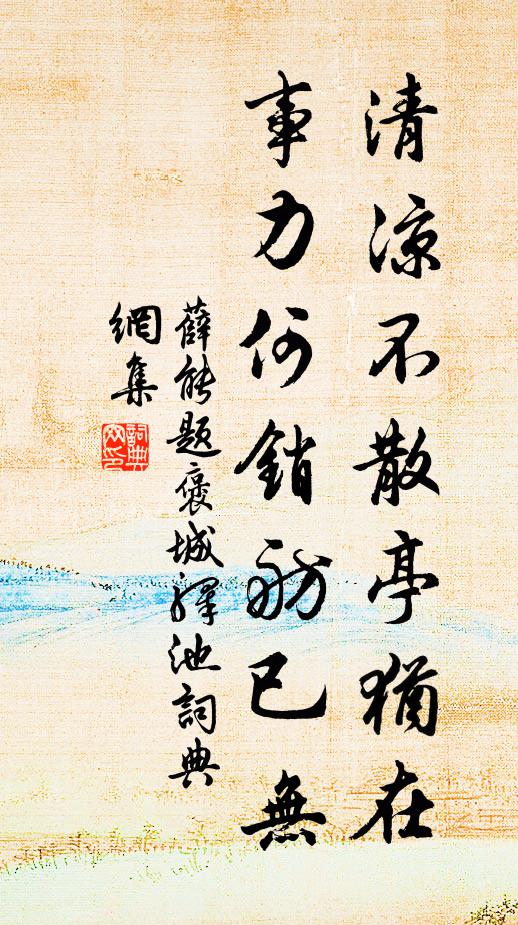 清涼不散亭猶在
事力何銷舫已無
薛能題褒城驛池詞典
網集
詞典